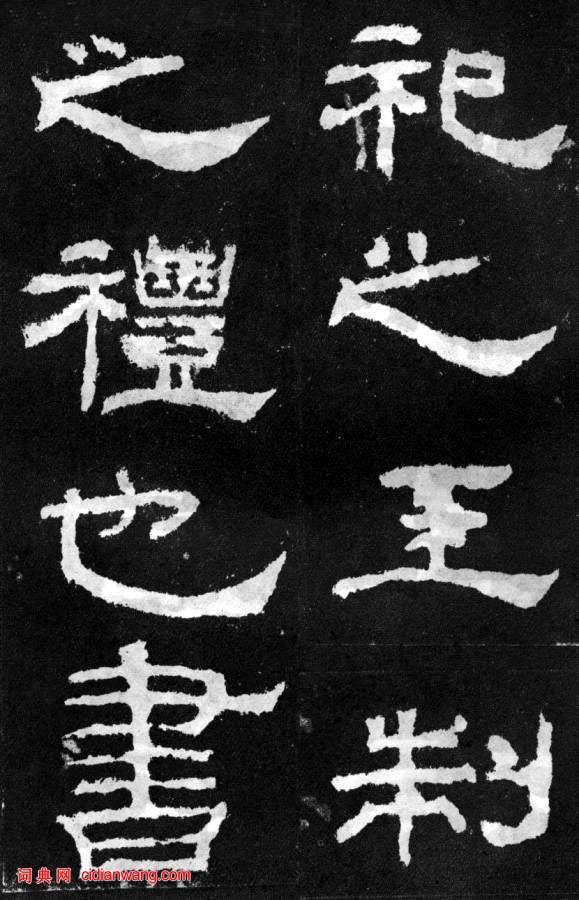 祀之王制
之禮也書
词典网 cidianwang.com